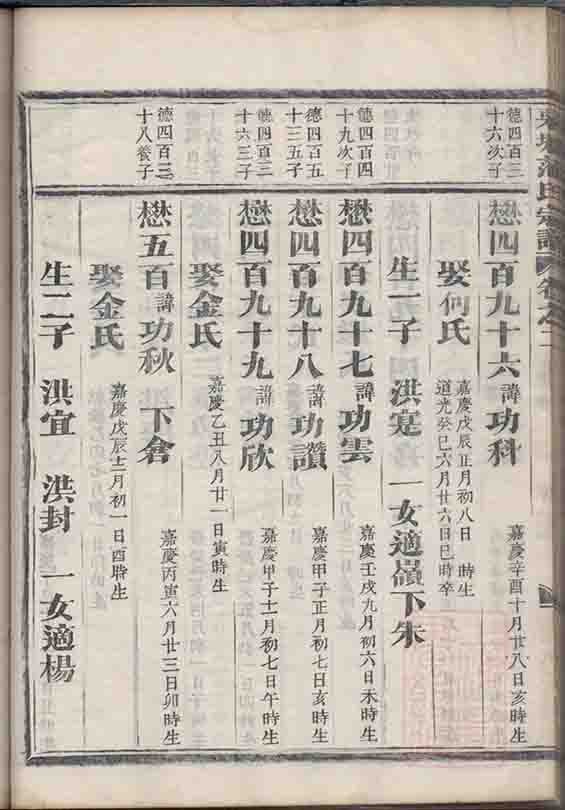 德四百三
十六次子
懋四百九十六 諱功科 嘉慶辛酉十月廿八日亥時生
娶何氏 嘉慶戊辰正月初八日 時生
道光癸巳六月廿六日巳時卒
生一子 洪寔 一女適嶺下朱
德四百四
十九次子
懋四百九十七 諱功雲 嘉慶壬戌九月初六日未時生
德四百五
十三五子
懋四百九十八 諱功讚 嘉慶甲子正月初七日亥時生
德四百三
十六三子
懋四百九十九 諱功欣 嘉慶甲子十一月初七日午時生
娶金氏 嘉慶乙丑八月廿一日寅時生
德四百三
十八養子
懋五百 諱功秋 下倉 嘉慶丙寅六月廿三日卯時生
娶金氏 嘉慶戊辰十二月初一日酉時生
生二子 洪宜 洪封 一女適楊